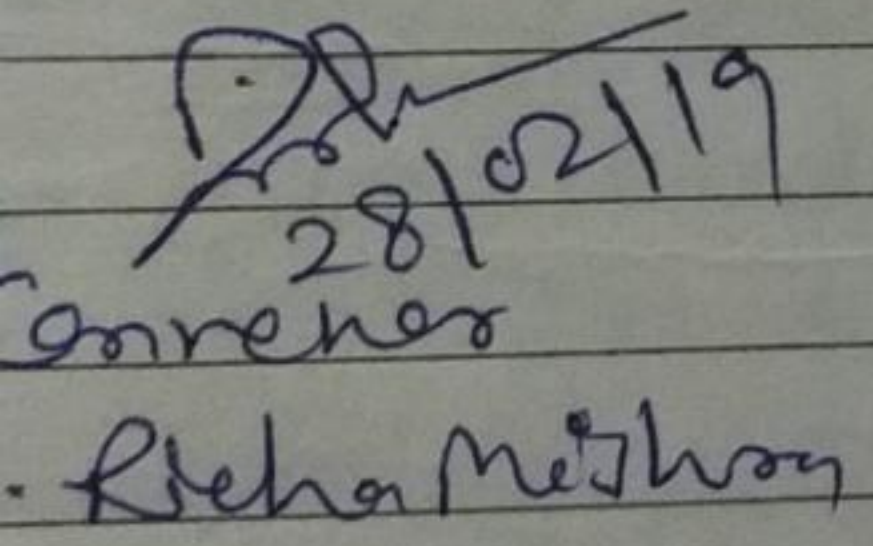 28/02/19
Convener
. Richa Mishra